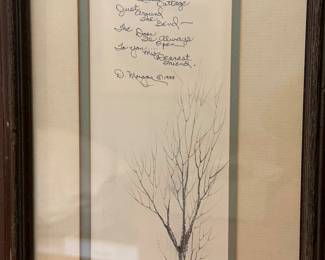 Cottage
Just Around
The Bend—
The Door
Is Always
Open
To you My
Dearest
Friend.
D. Morgan ©1988